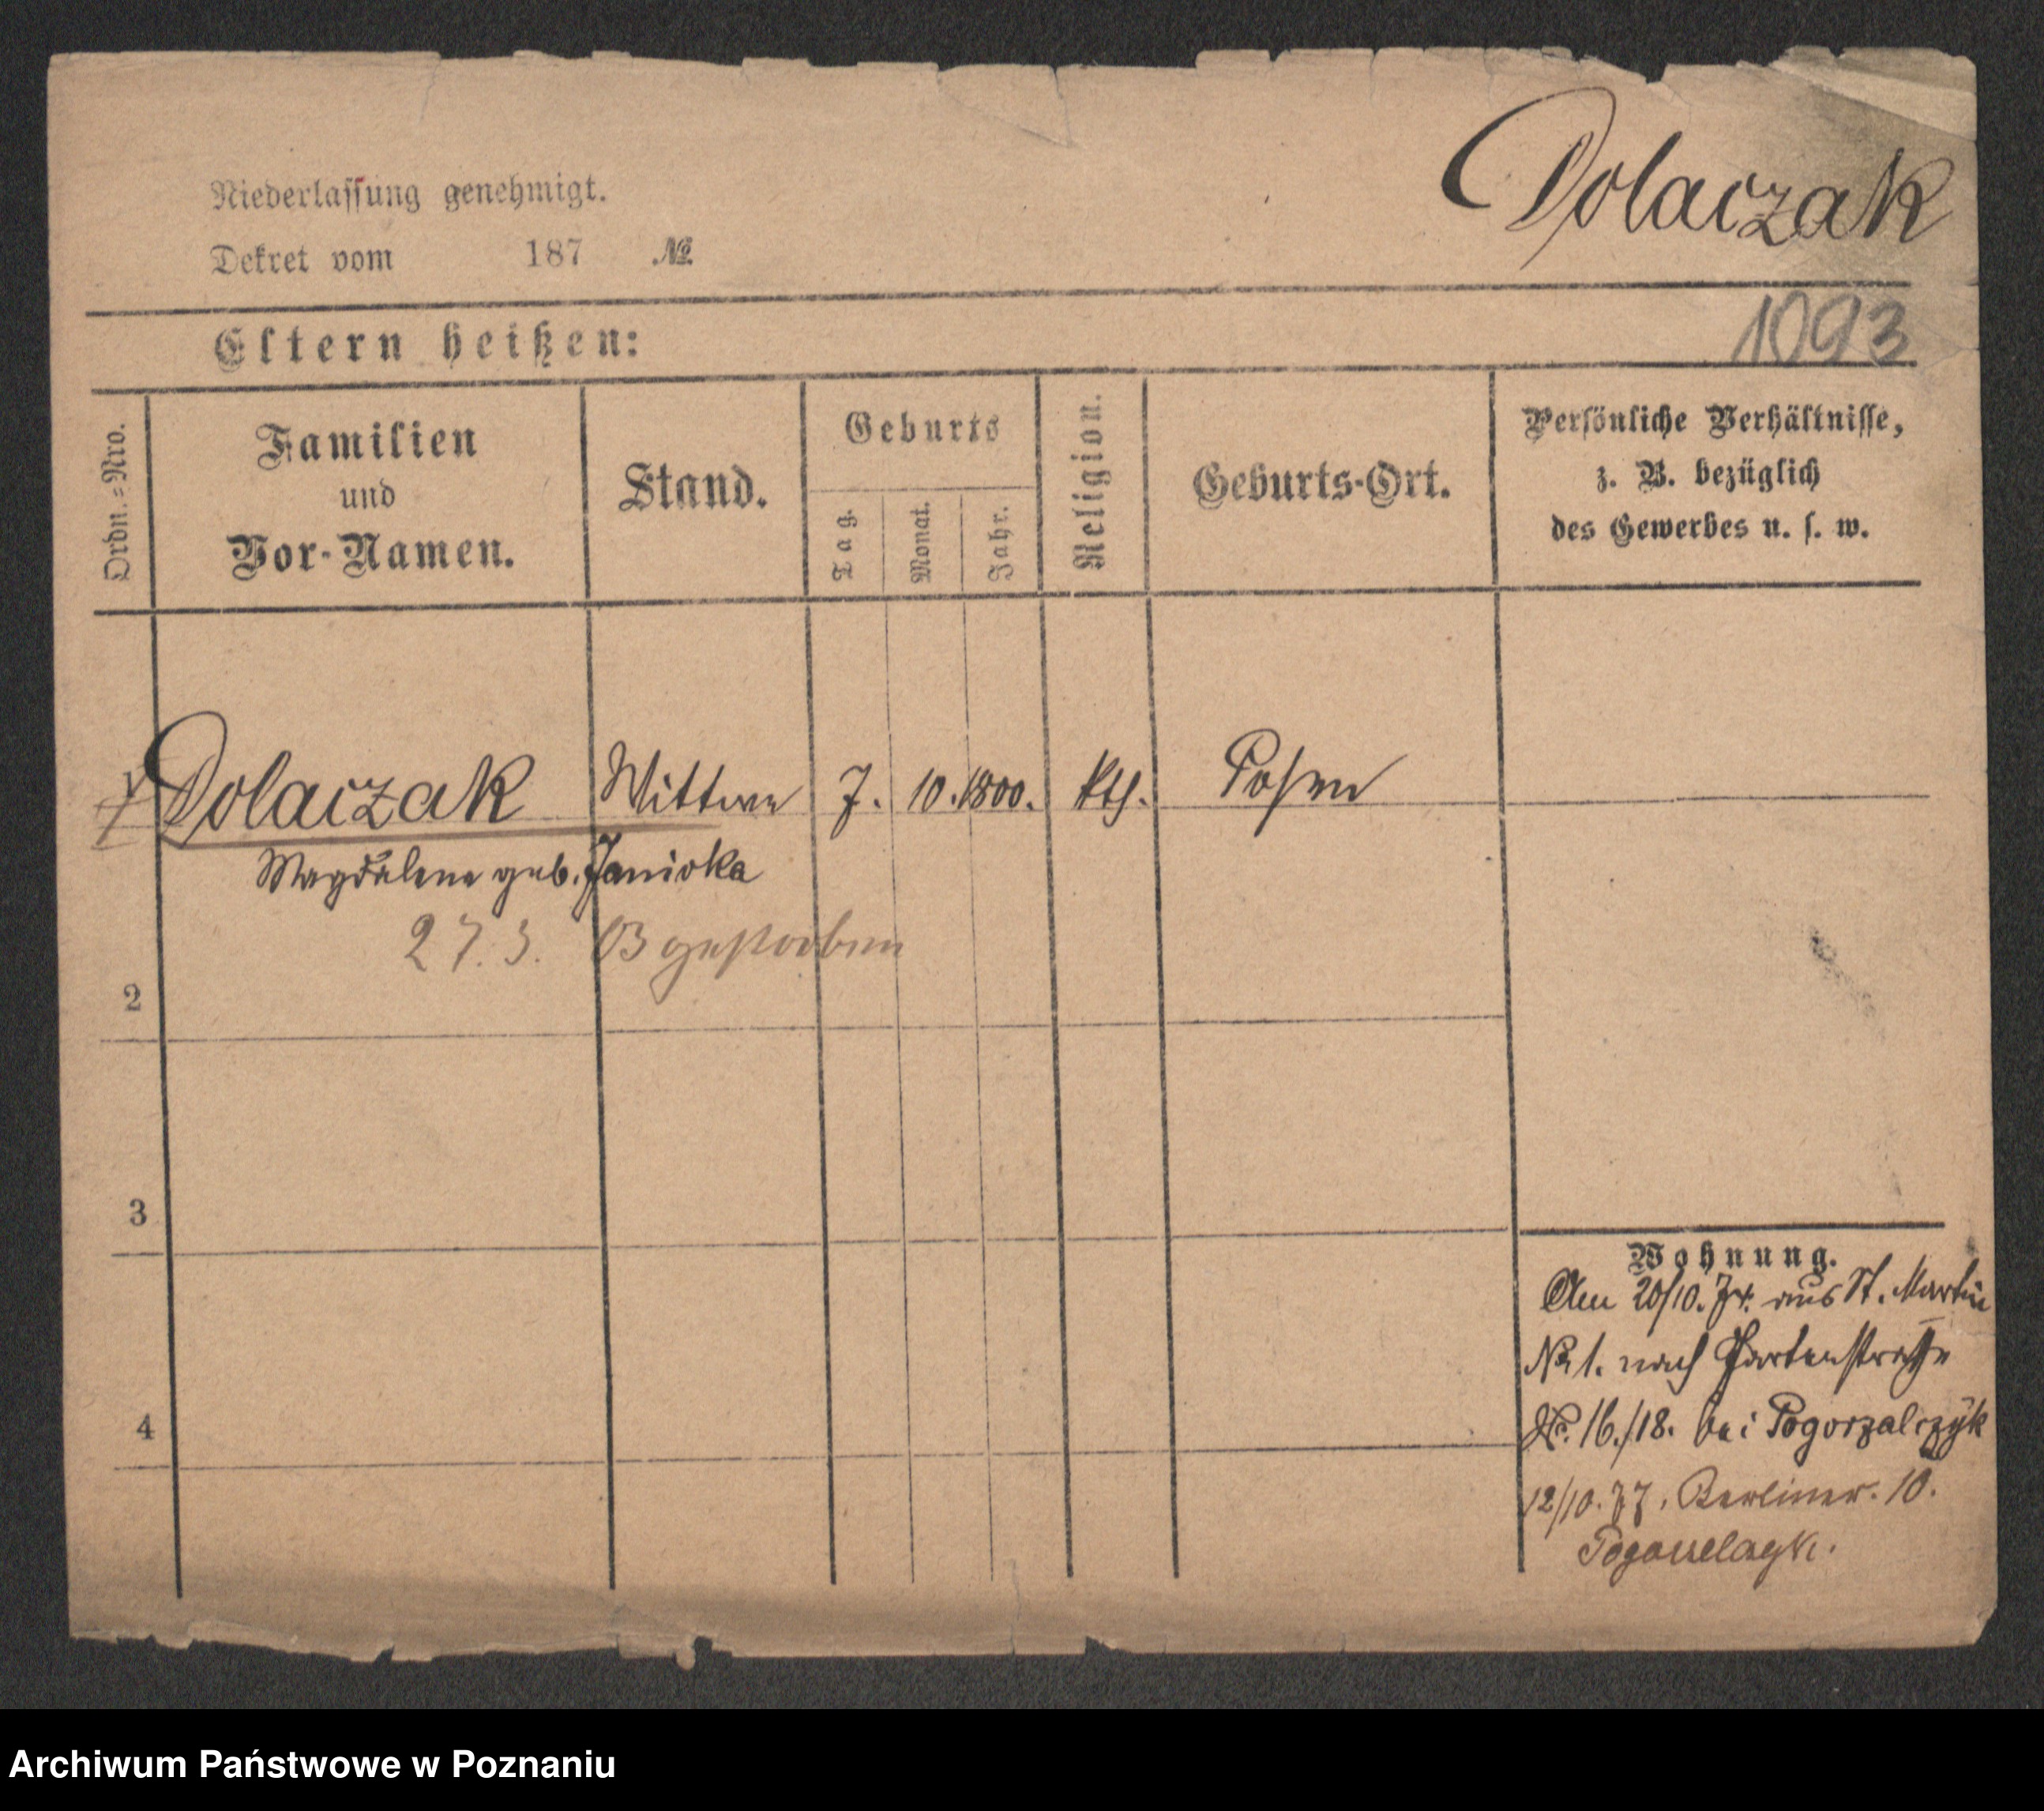 Dolaczak
Niederlassung genehmigt.
Dekret vom 187 №
1093
Eltern heißen:
Ordn.=Nro.
Familien
und
Vor-Namen.
Stand.
Geburts
Tag.
Monat.
Jahr.
Religion.
Geburts-Ort.
Persönliche Verhältnisse,
z. B. bezüglich
des Gewerbes u. s. w.
1 Dolaczak Wittwe 7. 10. 1800. kth. Posen
Magdalena geb. Janicka
27. 3. 83 gestorben
2
3
4
Wohnung.
Am 20/10. 74. aus St. Martin
No 1. nach Gartenstraße
No. 16./18. bei Pogorzalczyk
12/10. 77. Berliner. 10.
Archiwum Państwowe w Poznaniu